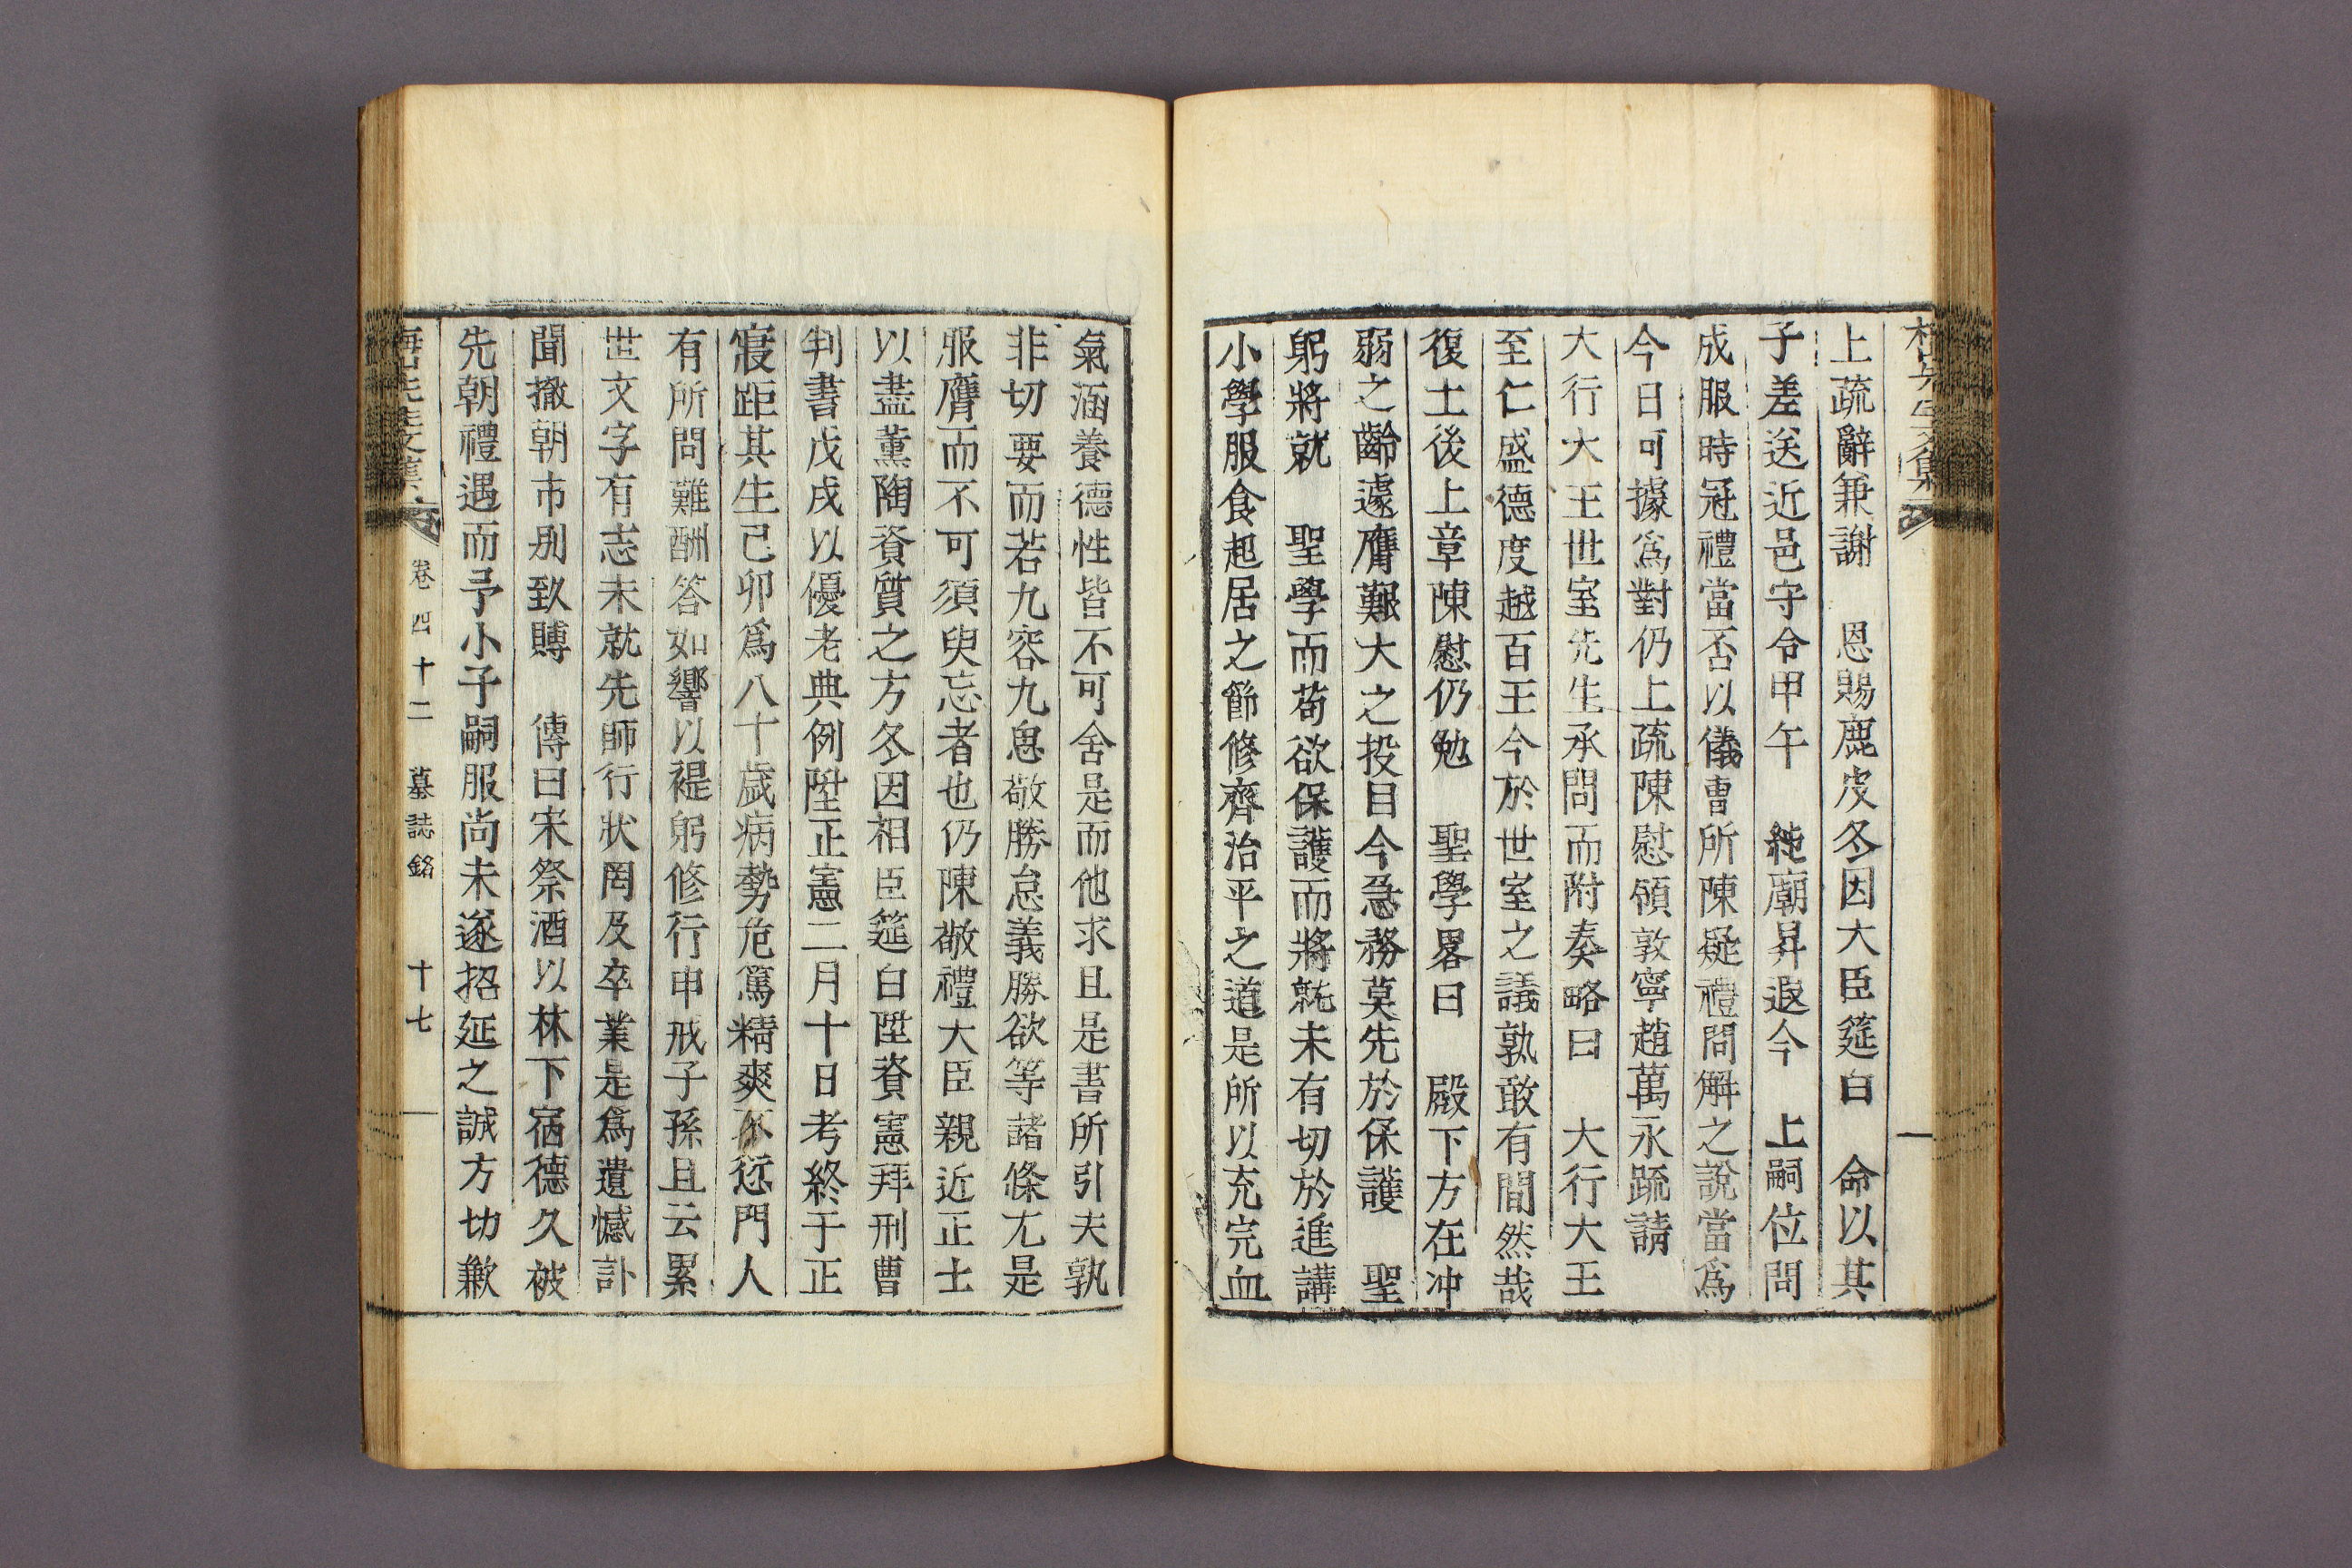 上疏辭兼謝 恩賜鹿皮冬因大臣筵白 命以其
子差送近邑守令甲午 純廟昇遐今 上嗣位問
成服時冠禮當否以儀曹所陳疑禮問解之說當爲
今日可據爲對仍上疏陳慰領敦寧趙萬永疏請
大行大王世室先生承問而附奏略曰 大行大王
至仁盛德度越百王今於世室之議孰敢有間然哉
復土後上章陳慰仍勉 聖學畧曰 殿下方在冲
弱之齡遽膺艱大之投目今急務莫先於保護 聖
躬將就 聖學而苟欲保護而將就未有切於進講
小學服食起居之節修齊治平之道是所以充完血
氣涵養德性皆不可舍是而他求且是書所引夫孰
非切要而若九容九思敬勝怠義勝欲等諸條尤是
服膺而不可須臾忘者也仍陳敬禮大臣親近正士
以盡薰陶資質之方冬因相臣筵白陞資憲拜刑曹
判書戊戌以優老典例陞正憲二月十日考終于正
寢距其生己卯爲八十歲病勢危篤精爽不愆門人
有所問難酬答如響以禔躬修行申戒子孫且云累
世文字有志未就先師行狀罔及卒業是爲遺憾訃
聞撤朝市別致賻 傳曰宋祭酒以林下宿德久被
先朝禮遇而予小子嗣服尚未遂招延之誠方切歉
先生文集 卷四十二 墓誌銘 十七